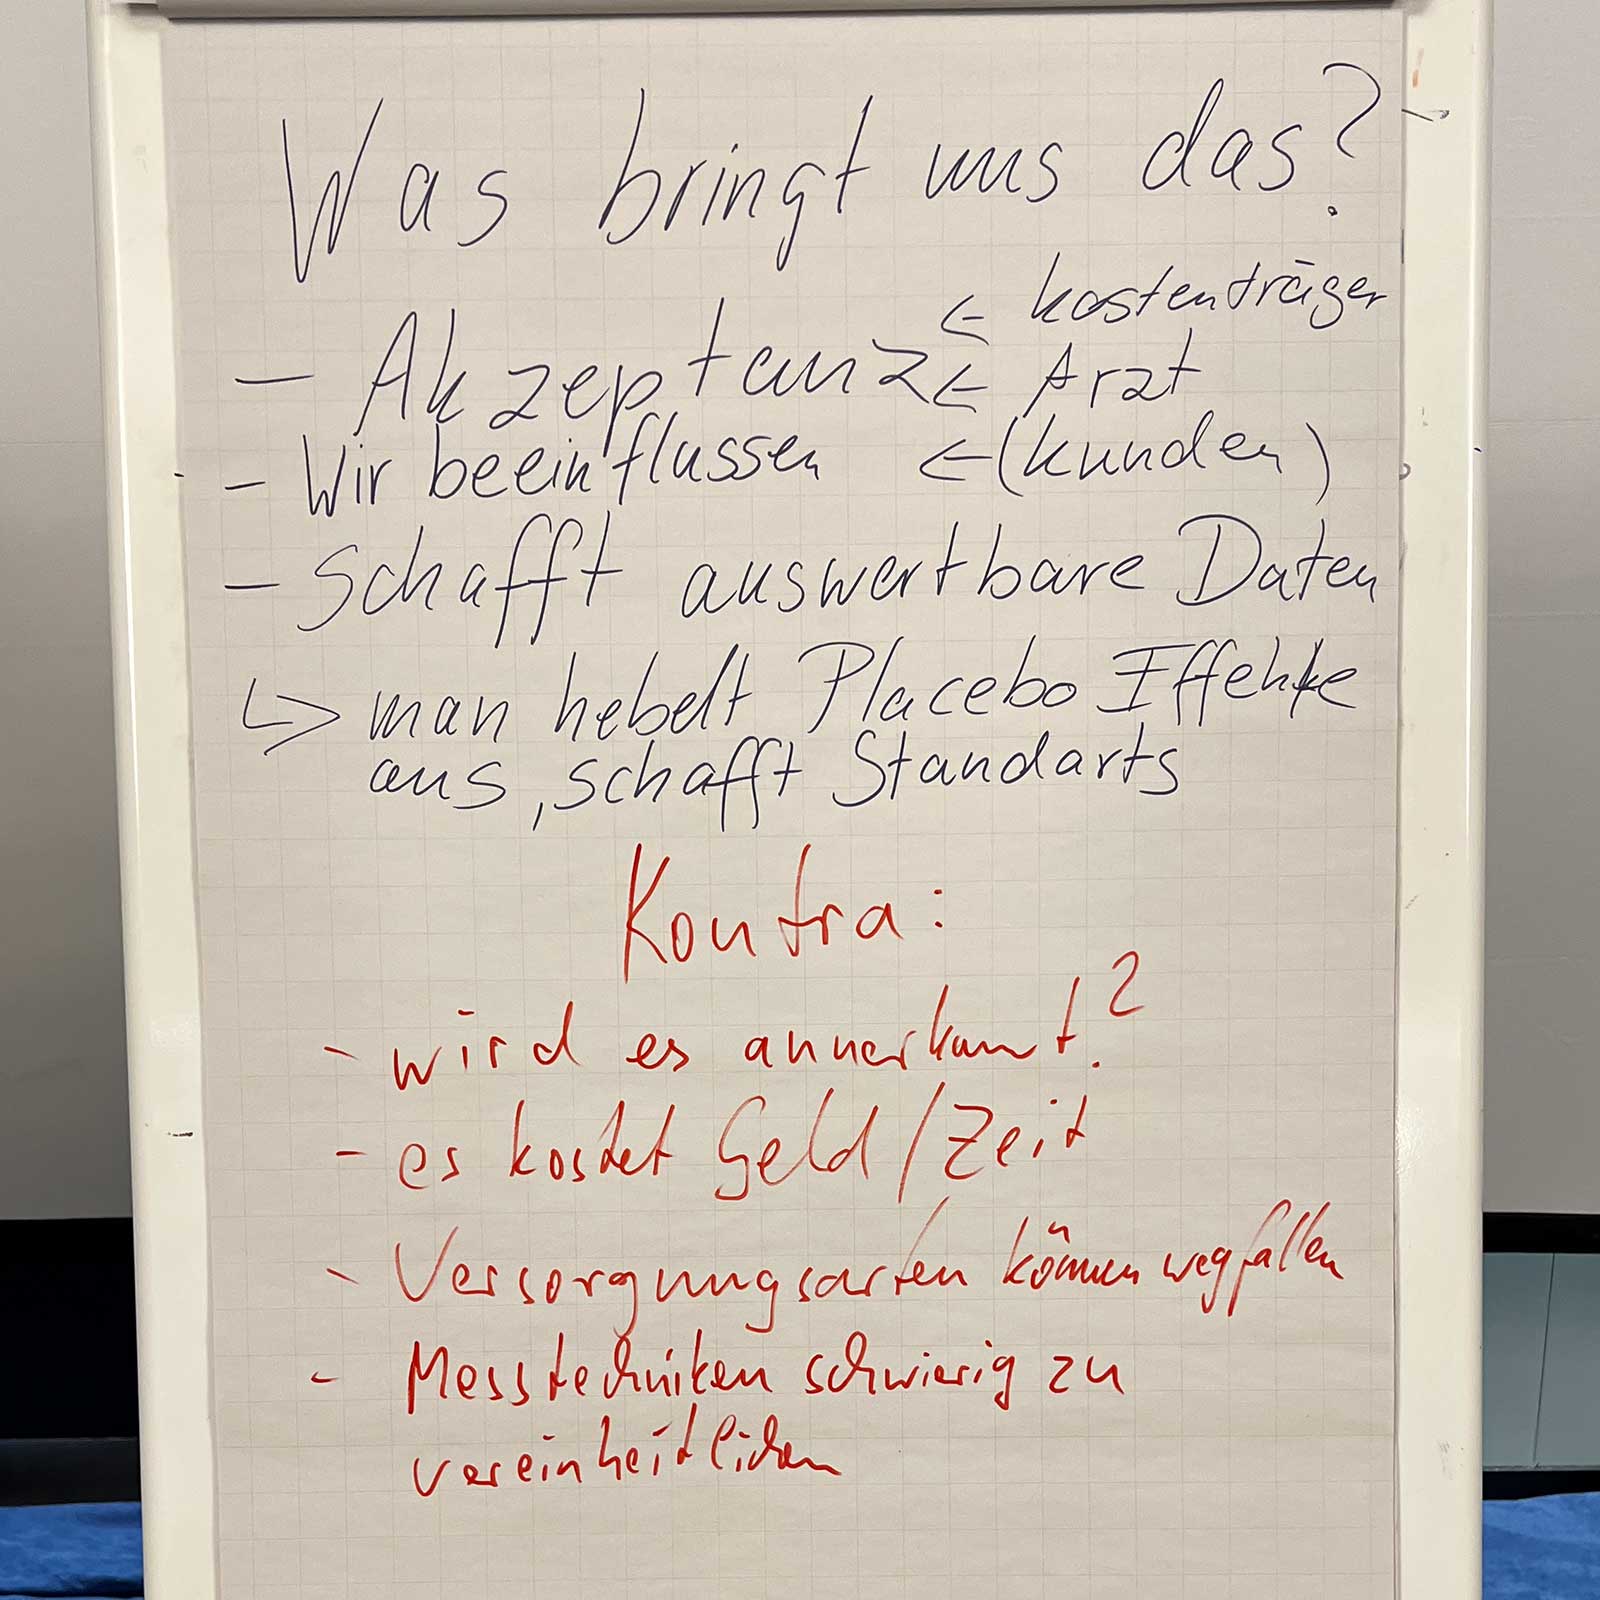 Was bringt uns das?
- Akzeptanz ← Kostenträger
← Arzt
- Wir beeinflussen ← (Kunden)
- Schafft auswertbare Daten
↳ man hebelt Placebo Effekte
aus, schafft Standarts
Kontra:
- wird es annerkannt?
- es kostet Geld/Zeit
- Versorgungsarten können wegfallen
- Messtechniken schwierig zu
vereinheitlichen